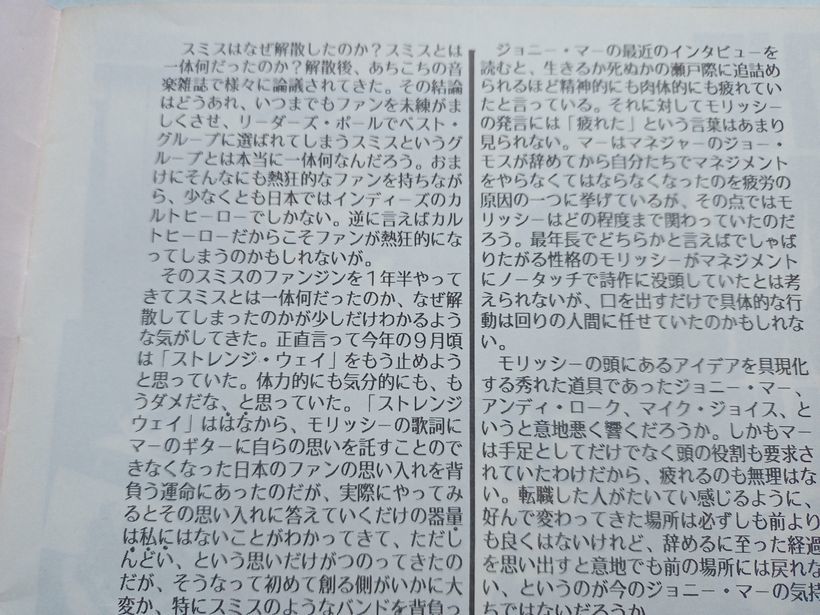 スミスはなぜ解散したのか？スミスとは
一体何だったのか？解散後、あちこちの音
楽雑誌で様々に論議されてきた。その結論
はどうあれ、いつまでもファンを未練がま
しくさせ、リーダーズ・ポールでベスト・
グループに選ばれてしまうスミスというグ
ループとは本当に一体何なんだろう。おま
けにそんなにも熱狂的なファンを持ちなが
ら、少なくとも日本ではインディーズのカ
ルトヒーローでしかない。逆に言えばカル
トヒーローだからこそファンが熱狂的にな
ってしまうのかもしれないが。
そのスミスのファンジンを１年半やって
きてスミスとは一体何だったのか、なぜ解
散してしまったのかが少しだけわかるよう
な気がしてきた。正直言って今年の９月頃
は「ストレンジ・ウェイ」をもう止めよう
と思っていた。体力的にも気分的にも、も
うダメだな、と思っていた。「ストレンジ
ウェイ」ははなから、モリッシーの歌詞に
マーのギターに自らの思いを託すことので
きなくなった日本のファンの思い入れを背
負う運命にあったのだが、実際にやってみ
るとその思い入れに答えていくだけの器量
は私にはないことがわかってきて、ただし
んどい、という思いだけがつのってきたの
だが、そうなって初めて創る側がいかに大
変か、特にスミスのようなバンドを背負っ
ジョニー・マーの最近のインタビューを
読むと、生きるか死ぬかの瀬戸際に追詰め
られるほど精神的にも肉体的にも疲れてい
たと言っている。それに対してモリッシー
の発言には「疲れた」という言葉はあまり
見られない。マーはマネジャーのジョー・
モスが辞めてから自分たちでマネジメント
をやらなくてはならなくなったのを疲労の
原因の一つに挙げているが、その点ではモ
リッシーはどの程度まで関わっていたのだ
ろう。最年長でどちらかと言えばでしゃば
りたがる性格のモリッシーがマネジメント
にノータッチで詩作に没頭していたとは考
えられないが、口を出すだけで具体的な行
動は回りの人間に任せていたのかもしれな
い。
モリッシーの頭にあるアイデアを具現化
する秀れた道具であったジョニー・マー、
アンディ・ローク、マイク・ジョイス、と
いうと意地悪く響くだろうか。しかもマー
は手足としてだけでなく頭の役割も要求さ
れていたわけだから、疲れるのも無理はな
い。転職した人がたいてい感じるように、
好んで変わってきた場所は必ずしも前より
も良くはないけれど、辞めるに至った経過
を思い出すと意地でも前の場所には戻れな
い、というのが今のジョニー・マーの気持
ちではないだろうか